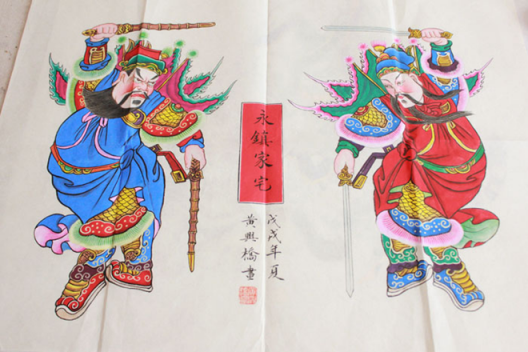 永鎮家宅
戊戌年夏
黄興橋書